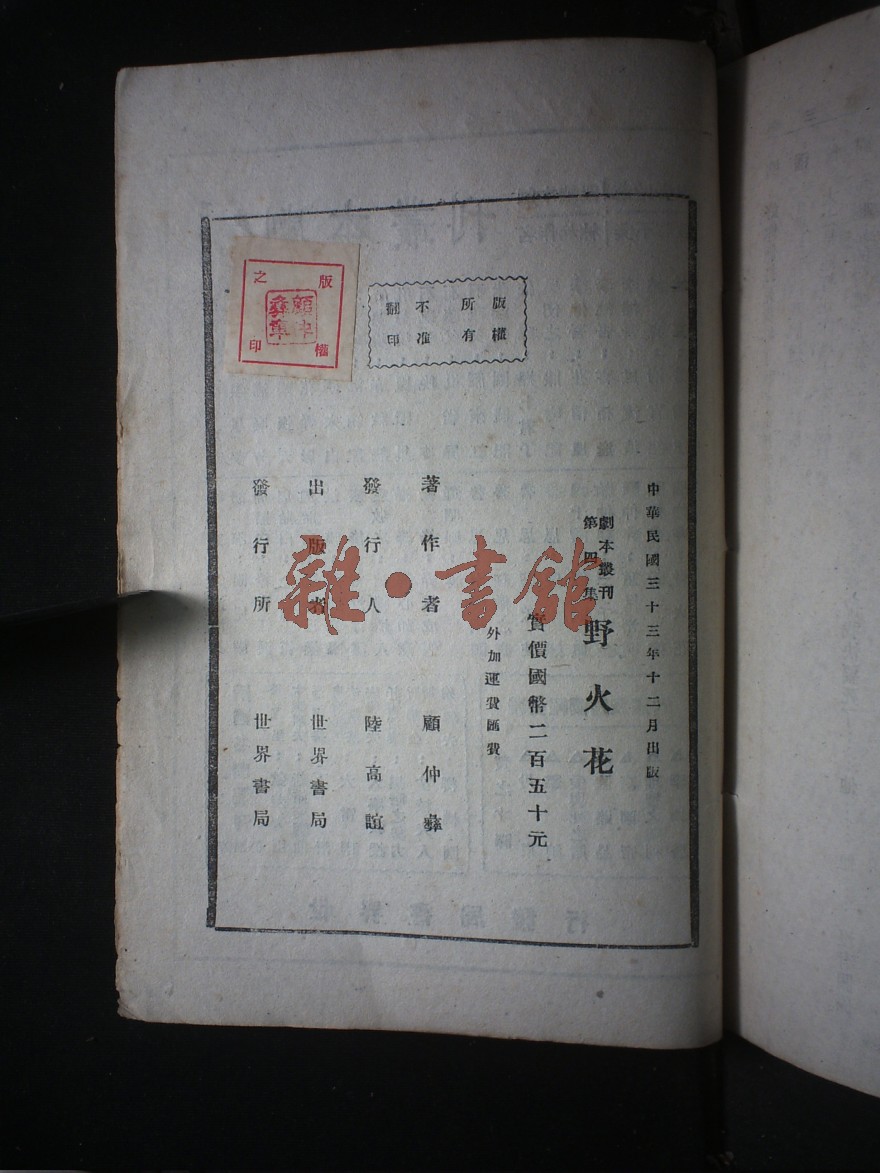 版權所有
不准翻印
版權之印
顧仲彝章
中華民國三十三年十二月出版
劇本叢刊
第四集
野火花
實價國幣二百五十元
外加運費匯費
著作者 顧仲彝
發行人 陸高誼
出版者 世界書局
發行所 世界書局
雜·書館